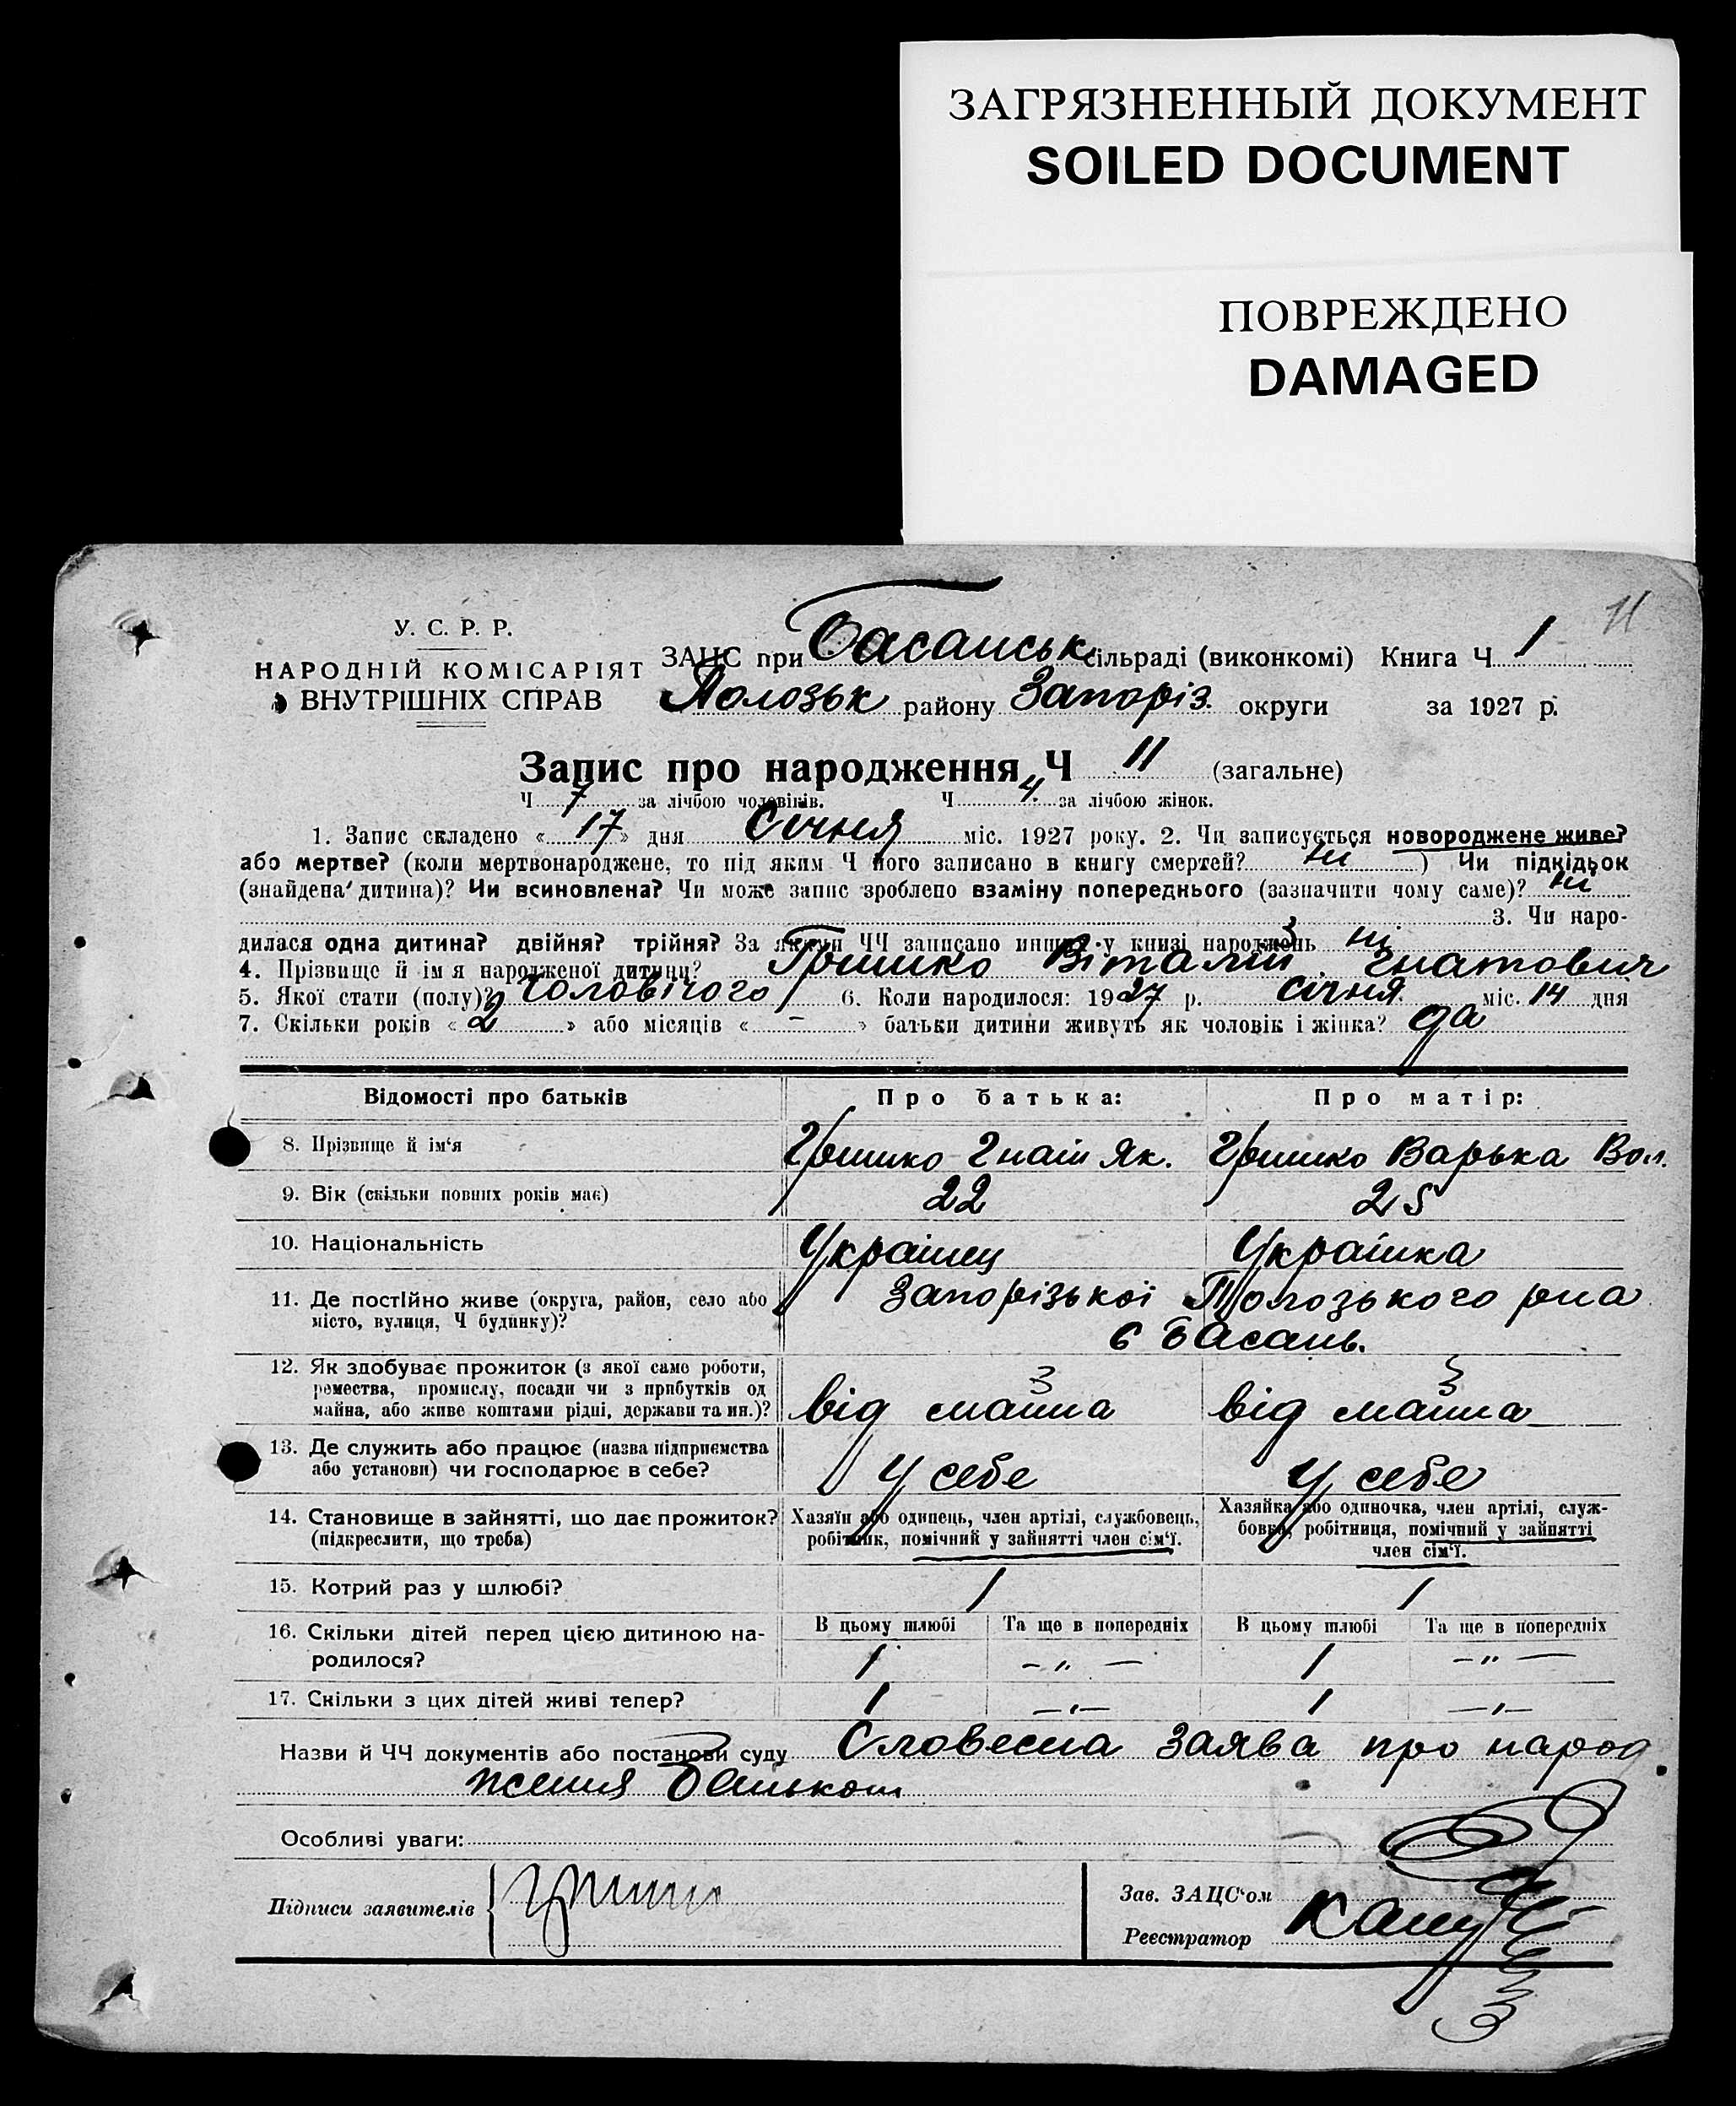 ЗАГРЯЗНЕННЫЙ ДОКУМЕНТ
SOILED DOCUMENT
ПОВРЕЖДЕНО
DAMAGED
11
У. С. Р. Р.
НАРОДНІЙ КОМІСАРІЯТ
ВНУТРІШНІХ СПРАВ
ЗАЦС при Басанськ. сільраді (виконкомі) Книга Ч. 1
Полозьк району Запоріз. округи за 1927 р.
Запис про народження Ч 11 (загальне)
Ч 7 за лічбою чоловіків. Ч „4. за лічбою жінок.
1. Запис складено « 17 » дня Січня міс. 1927 року. 2. Чи записується новороджене живе?
або мертве? (коли мертвонароджене, то під яким Ч його записано в книгу смертей? ні ) Чи підкідьок
(знайдена дитина)? Чи всиновлена? Чи може запис зроблено взаміну попереднього (зазначити чому саме)? ні
3. Чи наро-
дилася одна дитина? двійня? трійня? За якими ЧЧ записано инших у книзі народжень ні
4. Прізвище й ім я народженої дитини? Гришко Віталій Гнатович
5. Якої стати (полу)? Чоловічого 6. Коли народилося: 1927 р. січня міс. 14 дня
7. Скільки років « 2 » або місяців « - » батьки дитини живуть як чоловік і жінка? да
Відомості про батьків Про батька: Про матір:
8. Прізвище й ім'я Гришко Гнат Як. Гришко Варька Вол.
9. Вік (скільки повних років має) 22 25
10. Національність Українец Українка
11. Де постійно живе (округа, район, село або Запорізької Полозького рна
місто, вулиця, Ч будинку)? с Басань.
12. Як здобуває прожиток (з якої само роботи, З З
ремества, промислу, посади чи з прибутків од
майна, або живе коштами рідні, держави та ин.)? від майна від майна
13. Де служить або працює (назва підприємства
або установи) чи господарює в себе? у себе у себе
14. Становище в зайнятті, що дає прожиток? Хазяїн або одинець, член артілі, службовець, Хазяйка або одиночка, член артілі, служ-
(підкреслити, що треба) робітник, помічний у зайнятті член сім'ї. бовка, робітниця, помічний у зайнятті
член сім'ї.
15. Котрий раз у шлюбі? 1 1
16. Скільки дітей перед цією дитиною на- В цьому шлюбі Та ще в попередніх В цьому шлюбі Та ще в попередніх
родилося? 1 -„- 1 -„-
17. Скільки з цих дітей живі тепер? 1 -„- 1 -„-
Назви й ЧЧ документів або постанови суду Словесна заява про народ
ження Батьком
Особливі уваги:
Підписи заявителів Гришко
Зав. ЗАЦС'ом
Реєстратор